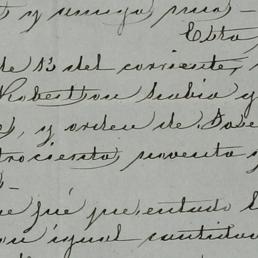 y
Esta
de 13 del corriente,
Robertson Rubio y
y orden de José
trocientos noventa y
que fué presentado
igual cantidad